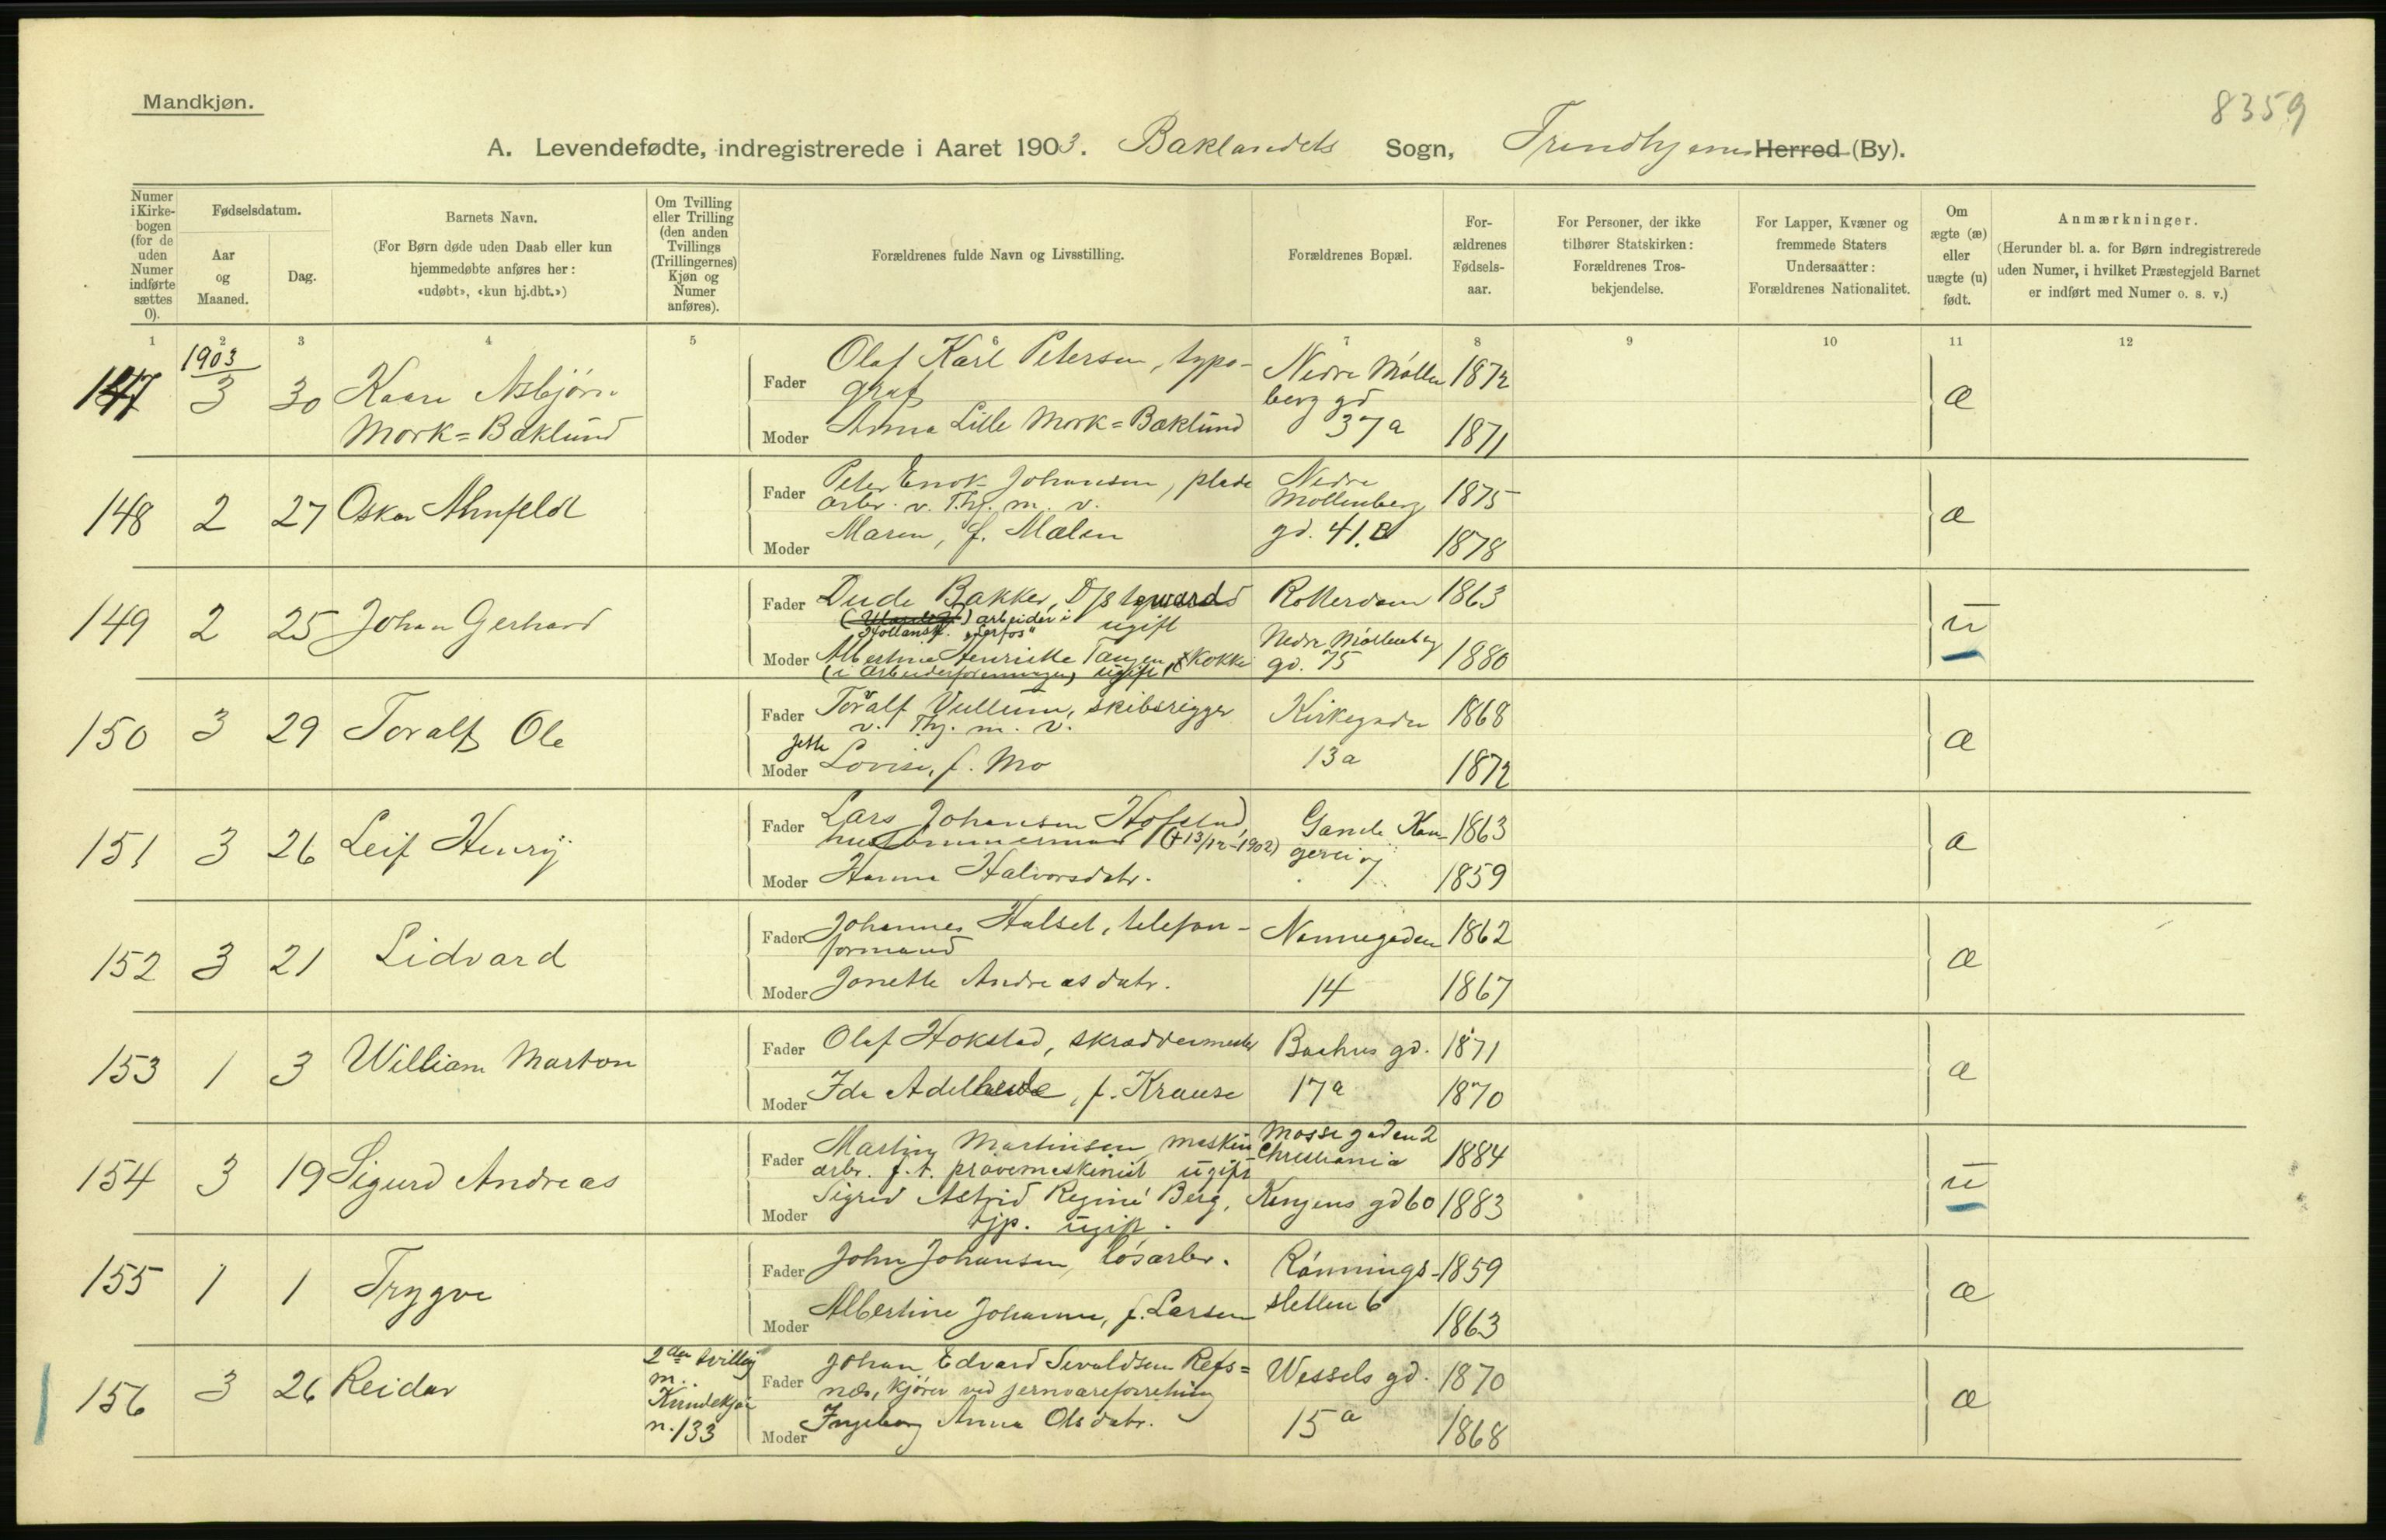 Mandkjøn.
8359
A. Levendefødte, indregistrerede i Aaret 1903. Baklandets Sogn, Trondhjems Herred (By).
Numer i Kirke-bogen (for de uden Numer indførte sættes 0).
Fødselsdatum.
Aar og Maaned.
Dag.
Barnets Navn.
(For Børn døde uden Daab eller kun hjemmedøbte anføres her: «udøbt», «kun hj.dbt.»)
Om Tvilling eller Trilling (den anden Tvillings (Trillingernes) Kjøn og Numer anføres).
Forældrenes fulde Navn og Livsstilling.
Forældrenes Bopæl.
For-ældrenes Fødsels-aar.
For Personer, der ikke tilhører Statskirken: Forældrenes Tros-bekjendelse.
For Lapper, Kvæner og fremmede Staters Undersaatter: Forældrenes Nationalitet.
Om ægte (æ) eller uægte (u) født.
Anmærkninger.
(Herunder bl. a. for Børn indregistrerede uden Numer, i hvilket Præstegjeld Barnet er indført med Numer o. s. v.)
1 2 3 4 5 6 7 8 9 10 11 12
1903
147 3 30 Kaare Asbjørn
Mork=Bæklund
Fader Olaf Karl Petersen, typo-
graf
Nedre Møllen
berg gd
1872
Moder Anna Lille Mork=Bæklund 37a 1871
æ
148 2 27 Oskar Ahnfeldt
Fader Peter Enok Johansen, plade
arbr. v. Thj. m. v.
Nedre
Møllenberg
1875
Moder Maren, f. Mælen gd. 41.B 1878
æ
149 2 25 Johan Gerhard
Fader Dude Bakker, D/s
arbeider i
Hollansk. "Lerfos" ugift
Rotterdam 1863
Moder Albertine Henrikke Tangen, Kokke
(i Arbeiderforeningen) ugift
Nedre Møllenberg
gd. 75
1880
u
150 3 29 Toralf Ole
Fader Toralf Vullum, skibsrigger
v. Thj. m. v.
Kirkegaden 1868
Jette
Moder Lovise, f. Mo 13a 1872
æ
151 3 26 Leif Henry
Fader Lars Johansen Hofstad,
hustømmermand (+13/12-1902)
Gamle Kan-
geri
1863
Moder Hanna Halvorsdatr. 7 1859
æ
152 3 21 Lidvard
Fader Johannes Halset, telefon-
formand
Nonnegaden 1862
Moder Jonette Andreasdatr. 14 1867
æ
153 1 3 William Marton
Fader Olaf Hokstad, skræddermester Bakhus gd. 1871
Moder Ida Adelheide, f. Krause 17a 1870
æ
154 3 19 Sigurd Andreas
Fader Martin Martinsen, maskin
arbr. f. t. prøvemaskinist ugift
Mosse gaden 2
Christiania
1884
Moder Sigrid Astrid Regine Berg,
tjp. ugift.
Kongens gd 60 1883
u
155 1 1 Trygve
Fader John Johansen, løsarbr. Rønnings- 1859
Moder Albertine Johanne, f. Larsen sletten 6 1863
æ
156 3 26 Reidar
2den tvilling
m.
Kvindekjøn
n. 133
Fader Johan Edvard Sivaldsen Refs=
næs, kjører ved jernvareforretning
Wessels gd. 1870
Moder Ingeborg Anna Olsdatr. 15a 1868
æ